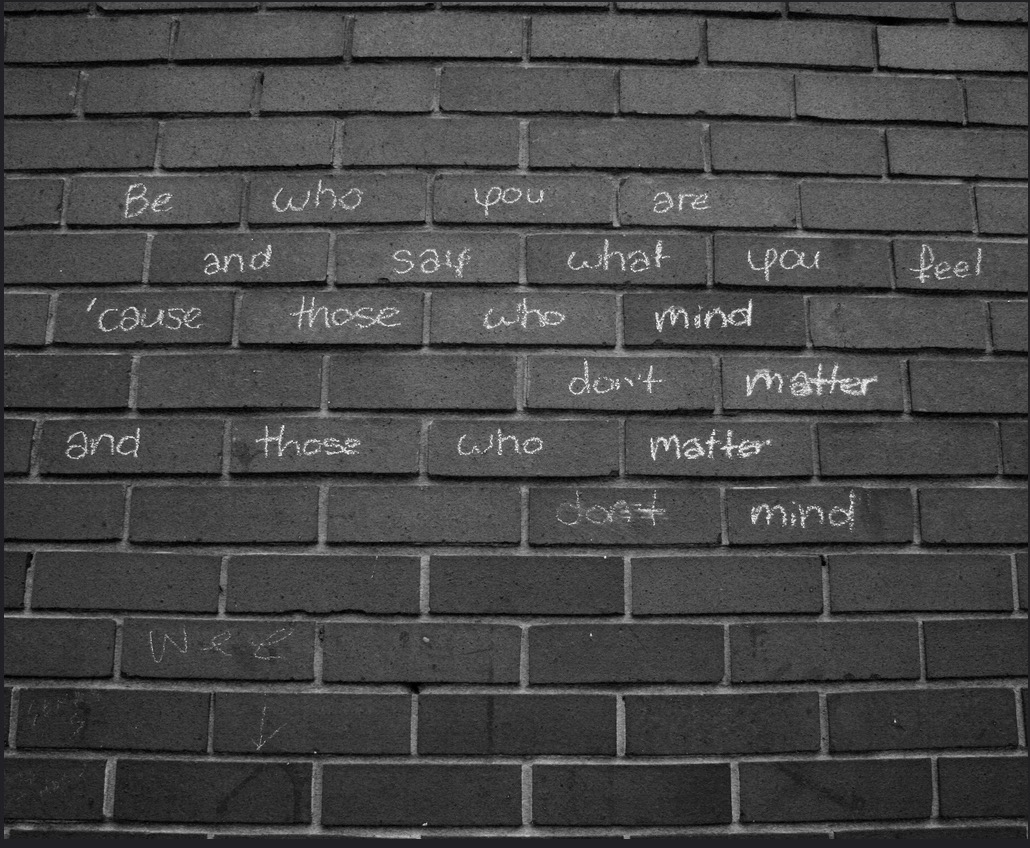 Be who you are
and say what you feel
'cause those who mind
don't matter
and those who matter
don't mind